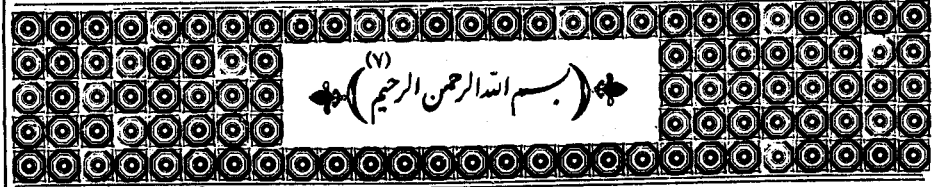 ﴿بسم الله الرحمن الرحيم (٧)﴾